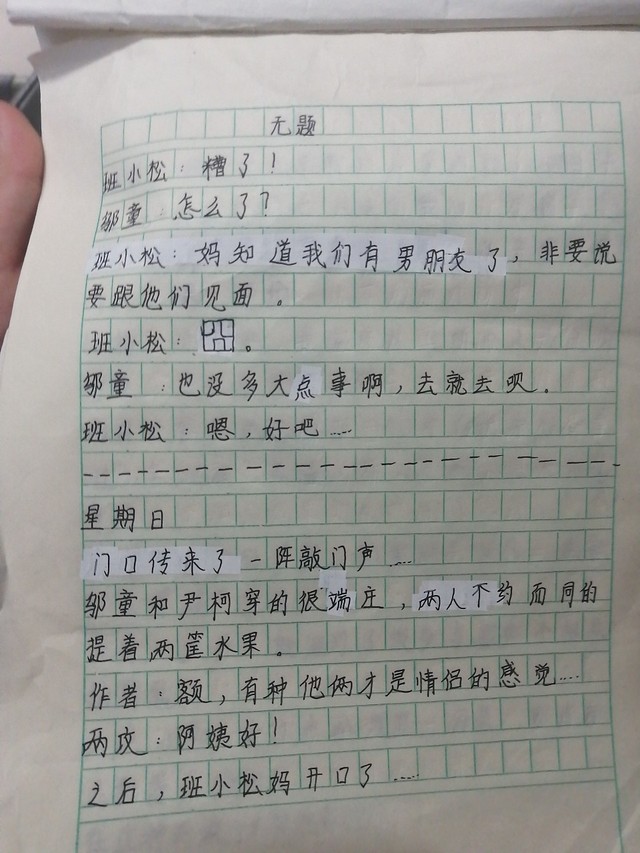 无题
班小松：糟了！
邬童：怎么了？
班小松：妈知道我们有男朋友了，非要说
要跟他们见面。
班小松：囧。
邬童：也没多大点事啊，去就去呗.
班小松：嗯，好吧……
星期日
门口传来了一阵敲门声……
邬童和尹柯穿的很端庄，两人不约而同的
提着两筐水果。
作者：额，有种他俩才是情侣的感觉……
两攻：阿姨好！
之后，班小松妈开口了……